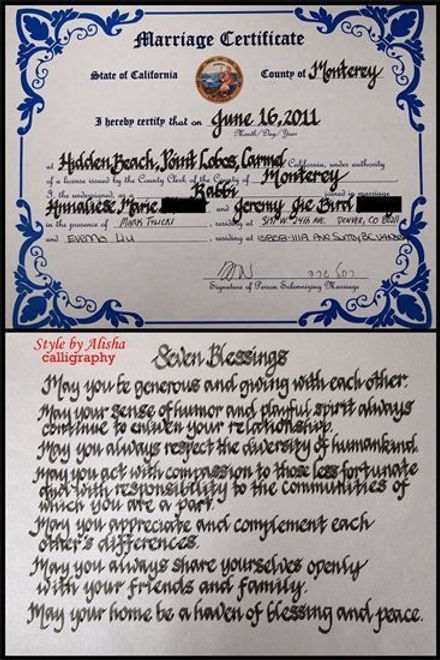 Marriage Certificate
State of California County of Monterey
I hereby certify that on June 16, 2011
Month/Day/Year
at Hidden Beach, Point Lobos, Carmel California, under authority
of a license issued by the County Clerk of the County of Monterey
I, the undersigned, as a Rabbi joined in marriage
Annaliese Marie and Jeremy Gie Bird
in the presence of MARK , residing at 34TH AVE. DENVER, CO
and LIU , residing at AVE BC
Signature of Person Solemnizing Marriage
Style by Alisha
calligraphy
Seven Blessings
May you be generous and giving with each other.
May your sense of humor and playful spirit always
continue to enliven your relationship.
May you always respect the diversity of humankind.
May you act with compassion to those less fortunate
and with responsibility to the communities of
which you are a part.
May you appreciate and complement each
other's differences.
May you always share yourselves openly
with your friends and family.
May your home be a haven of blessing and peace.